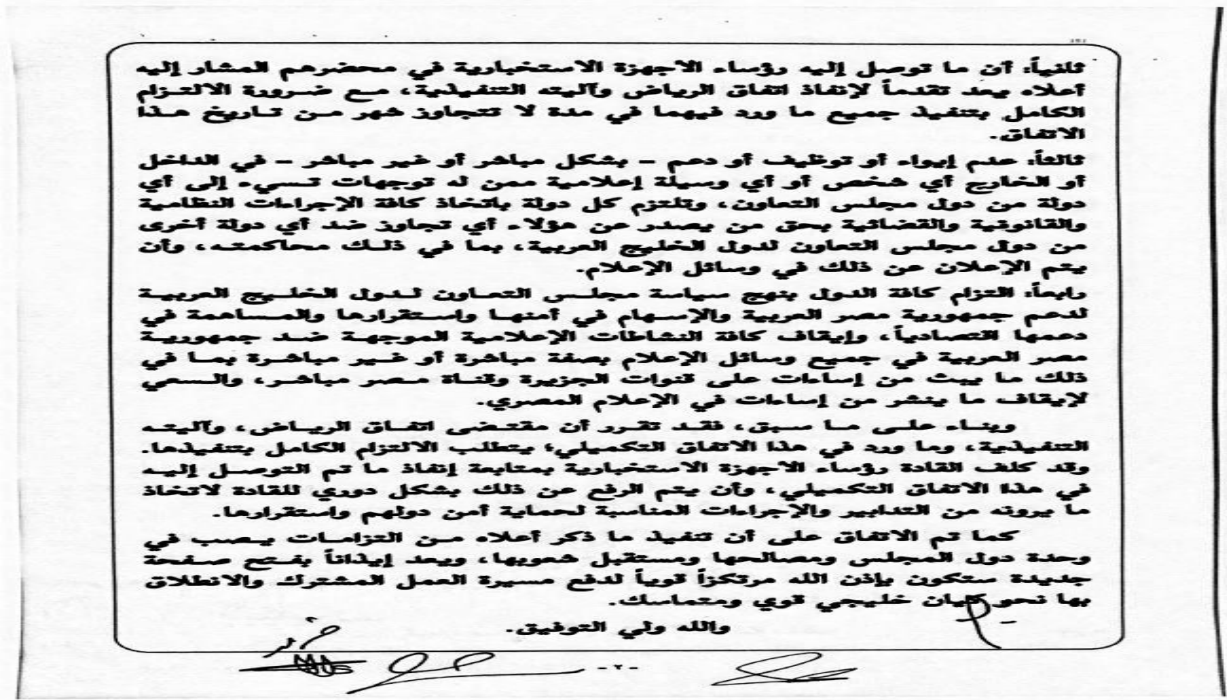 ثانياً: أن ما توصل إليه رؤساء الاجهزة الاستخبارية في محضرهم المشار إليه
أعلاه يعد تقدماً لإنفاذ اتفاق الرياض وآليته التنفيذية، مع ضرورة الالتزام
الكامل بتنفيذ جميع ما ورد فيهما في مدة لا تتجاوز شهر من تاريخ هذا
الاتفاق.
ثالثاً: عدم إيواء أو توظيف أو دعم – بشكل مباشر أو غير مباشر – في الداخل
أو الخارج أي شخص أو أي وسيلة إعلامية ممن له توجهات تسيء إلى أي
دولة من دول مجلس التعاون، وتلتزم كل دولة باتخاذ كافة الإجراءات النظامية
والقانونية والقضائية بحق من يصدر عن هؤلاء أي تجاوز ضد أي دولة أخرى
من دول مجلس التعاون لدول الخليج العربية، بما في ذلك محاكمته، وأن
يتم الإعلان عن ذلك في وسائل الإعلام.
رابعاً: التزام كافة الدول بنهج سياسة مجلس التعاون لدول الخليج العربية
لدعم جمهورية مصر العربية والإسهام في أمنها واستقرارها والمساهمة في
دعمها اقتصادياً، وإيقاف كافة النشاطات الإعلامية الموجهة ضد جمهورية
مصر العربية في جميع وسائل الإعلام بصفة مباشرة أو غير مباشرة بما في
ذلك ما يبث من إساءات على قنوات الجزيرة وقناة مصر مباشر، والسعي
لإيقاف ما ينشر من إساءات في الإعلام المصري.
وبناء على ما سبق، فقد تقرر أن مقتضى اتفاق الرياض، وآليته
التنفيذية، وما ورد في هذا الاتفاق التكميلي؛ يتطلب الالتزام الكامل بتنفيذها.
وقد كلف القادة رؤساء الاجهزة الاستخبارية بمتابعة إنفاذ ما تم التوصل إليه
في هذا الاتفاق التكميلي، وأن يتم الرفع عن ذلك بشكل دوري للقادة لاتخاذ
ما يرونه من التدابير والإجراءات المناسبة لحماية أمن دولهم واستقرارها.
كما تم الاتفاق على أن تنفيذ ما ذكر أعلاه من التزامات يصب في
وحدة دول المجلس ومصالحها ومستقبل شعوبها، ويعد إيذاناً بفتح صفحة
جديدة ستكون بإذن الله مرتكزاً قوياً لدفع مسيرة العمل المشترك والانطلاق
بها نحو كيان خليجي قوي ومتماسك.
والله ولي التوفيق.
- ٢ -